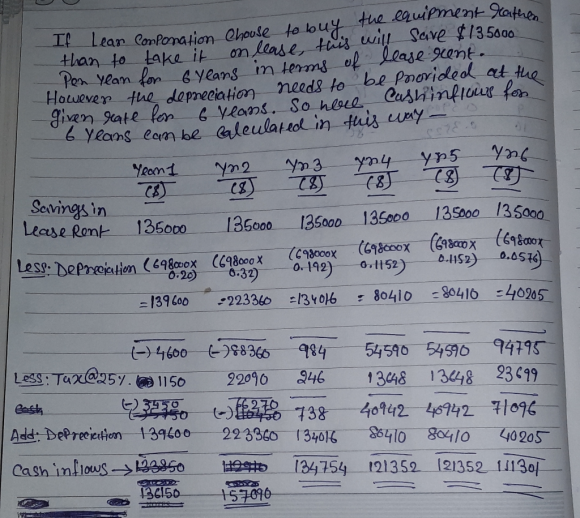 If Lear Corporation Choose to buy the equipment rather
than to take it on lease, this will save $135000
Per year for 6 years in terms of lease rent.
However the depreciation needs to be provided at the
given rate for 6 years. So here Cash inflows for
6 Years can be Calculated in this way —
Year 1 Yr2 Yr3 Yr4 Yr5 Yr6
($) ($) ($) ($) ($) ($)
Savings in
Lease Rent 135000 135000 135000 135000 135000 135000
Less: Depreciation (698000x (698000x (698000x (698000x (698000x (698000x
0.20) 0.32) 0.192) 0.1152) 0.1152) 0.0576)
=139600 =223360 =134016 =80410 =80410 =40205
(-) 4600 (-) 88360 984 54590 54590 94795
Less: Tax@25%. 1150 22090 246 13648 13648 23699
(-) 3450 (-) 66270 738 40942 40942 71096
Add: Depreciation 139600 223360 134016 80410 80410 40205
Cash inflows → 134754 121352 121352 111301
136150 157090